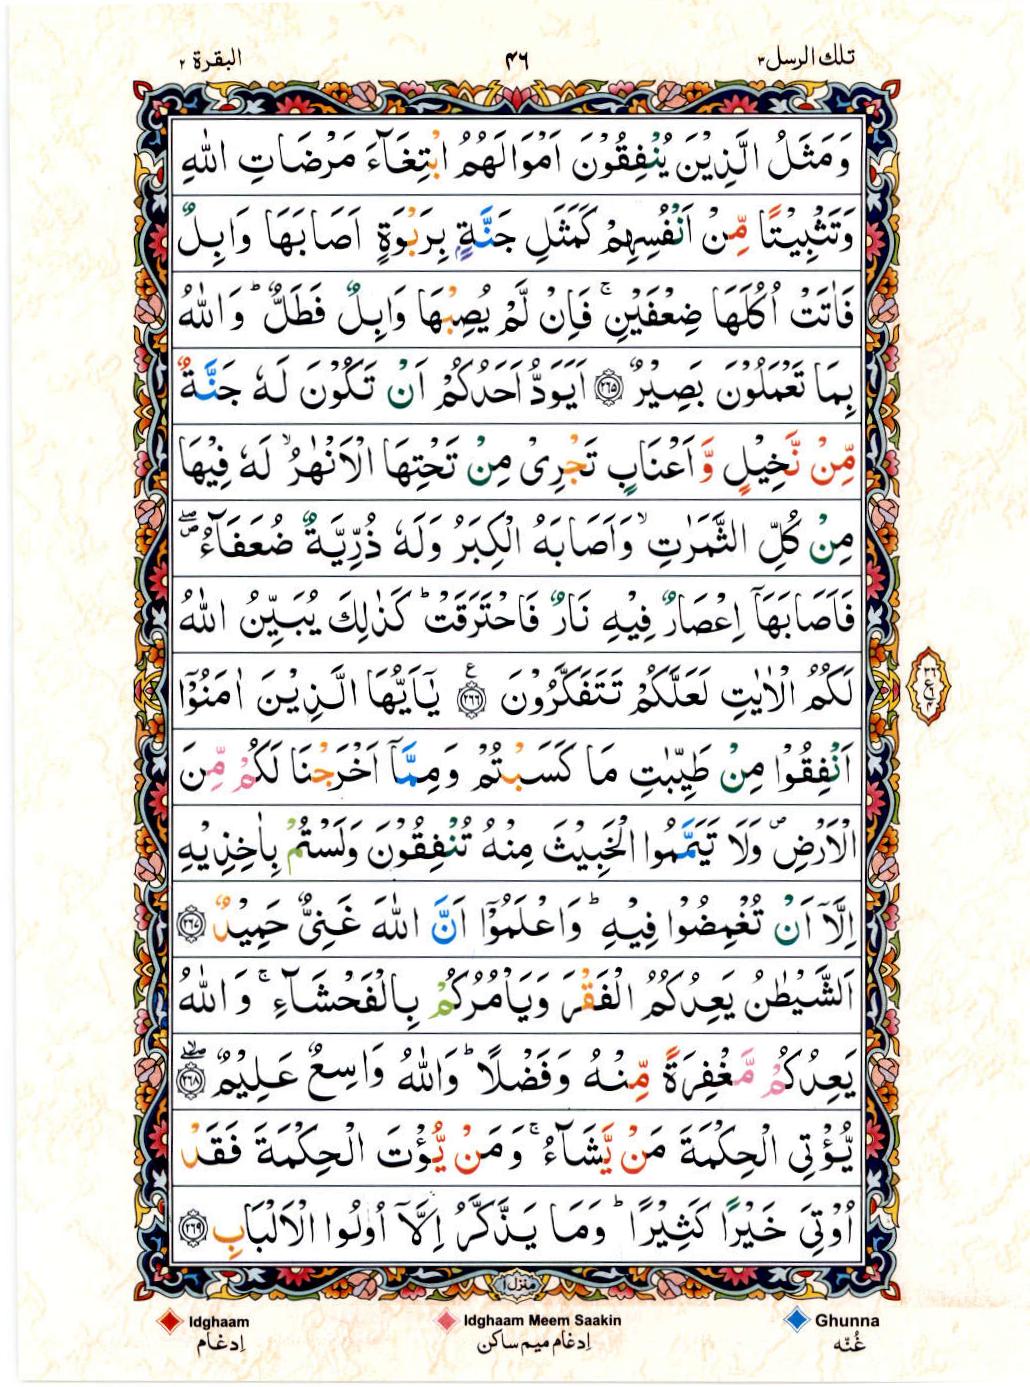 تلك الرسل ٣ ۴۶ البقرة ٢
وَمَثَلُ الَّذِيْنَ يُنْفِقُوْنَ اَمْوَالَهُمُ ابْتِغَآءَ مَرْضَاتِ اللّٰهِ
وَتَثْبِيْتًا مِّنْ اَنْفُسِهِمْ كَمَثَلِ جَنَّةٍۭ بِرَبْوَةٍ اَصَابَهَا وَابِلٌ
فَاٰتَتْ اُكُلَهَا ضِعْفَيْنِ ۚ فَاِنْ لَّمْ يُصِبْهَا وَابِلٌ فَطَلٌّ ؕ وَاللّٰهُ
بِمَا تَعْمَلُوْنَ بَصِيْرٌ ﴿۲۶۵﴾ اَيَوَدُّ اَحَدُكُمْ اَنْ تَكُوْنَ لَهٗ جَنَّةٌ
مِّنْ نَّخِيْلٍ وَّاَعْنَابٍ تَجْرِىْ مِنْ تَحْتِهَا الْاَنْهٰرُ ۙ لَهٗ فِيْهَا
مِنْ كُلِّ الثَّمَرٰتِ ۙ وَاَصَابَهُ الْكِبَرُ وَلَهٗ ذُرِّيَّةٌ ضُعَفَآءُ ۖ
فَاَصَابَهَاۤ اِعْصَارٌ فِيْهِ نَارٌ فَاحْتَرَقَتْ ؕ كَذٰلِكَ يُبَيِّنُ اللّٰهُ
لَكُمُ الْاٰيٰتِ لَعَلَّكُمْ تَتَفَكَّرُوْنَ ﴿۲۶۶﴾ ع يٰۤاَيُّهَا الَّذِيْنَ اٰمَنُوْۤا
اَنْفِقُوْا مِنْ طَيِّبٰتِ مَا كَسَبْتُمْ وَمِمَّاۤ اَخْرَجْنَا لَكُمْ مِّنَ
الْاَرْضِ ۪ وَلَا تَيَمَّمُوا الْخَبِيْثَ مِنْهُ تُنْفِقُوْنَ وَلَسْتُمْ بِاٰخِذِيْهِ
اِلَّاۤ اَنْ تُغْمِضُوْا فِيْهِ ؕ وَاعْلَمُوْۤا اَنَّ اللّٰهَ غَنِىٌّ حَمِيْدٌ ﴿۲۶۷﴾
اَلشَّيْطٰنُ يَعِدُكُمُ الْفَقْرَ وَيَاْمُرُكُمْ بِالْفَحْشَآءِ ۚ وَاللّٰهُ
يَعِدُكُمْ مَّغْفِرَةً مِّنْهُ وَفَضْلًا ؕ وَاللّٰهُ وَاسِعٌ عَلِيْمٌ ﴿۲۶۸﴾ ۖۙ
يُّؤْتِى الْحِكْمَةَ مَنْ يَّشَآءُ ۚ وَمَنْ يُّؤْتَ الْحِكْمَةَ فَقَدْ
اُوْتِىَ خَيْرًا كَثِيْرًا ؕ وَمَا يَذَّكَّرُ اِلَّاۤ اُولُوا الْاَلْبَابِ ﴿۲۶۹﴾
منزل ۱
Idghaam Idghaam Meem Saakin Ghunna
إدغام إدغام ميم ساكن غُنّه